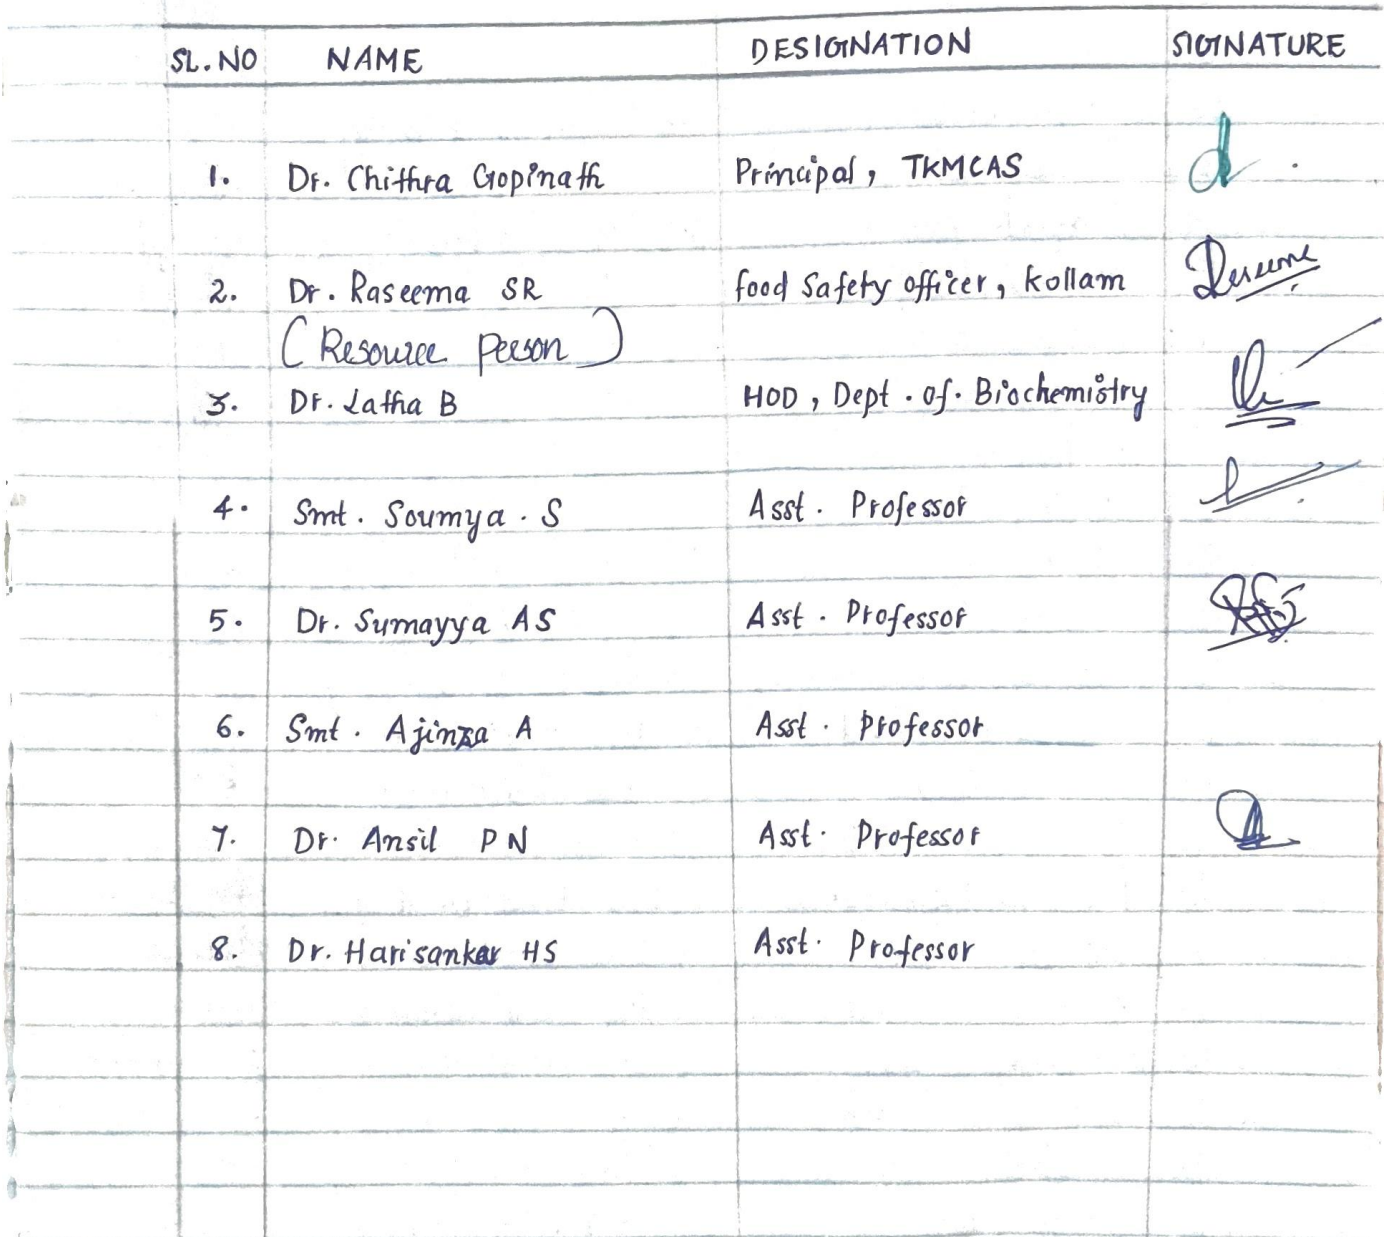 SL.NO NAME DESIGNATION SIGNATURE
1. Dr. Chithra Gopinath Principal, TKMCAS
2. Dr. Raseema SR food Safety officer, kollam
(Resource person)
3. Dr. Latha B HOD, Dept. of. Biochemistry
4. Smt. Soumya. S Asst. Professor
5. Dr. Sumayya AS Asst. Professor
6. Smt. Ajinza A Asst. Professor
7. Dr. Ansil PN Asst. Professor
8. Dr. Harisankar HS Asst. Professor